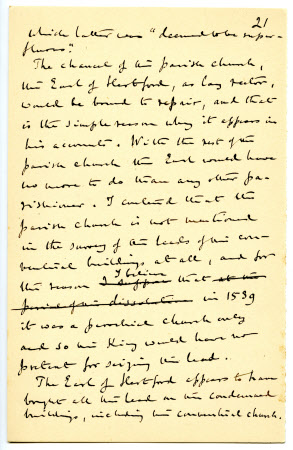 21
which latter were "deemed to be super-
fluous."
The chancel of the parish church,
the Earl of Hertford, as lay rector,
would be bound to repair, and that
is the simple reason why it appears in
his accounts. With the rest of the
parish church the Earl would have
no more to do than any other pa-
rishioner. I contend that the
parish church is not mentioned
in the survey of the leads of the con-
ventual buildings at all, and for
the reason I suppose I believe that at the
period of the dissolution in 1539
it was a parochial church only
and so the King would have no
pretext for seizing the lead.
The Earl of Hertford appears to have
bought all the lead on the condemned
buildings, including the conventual church.